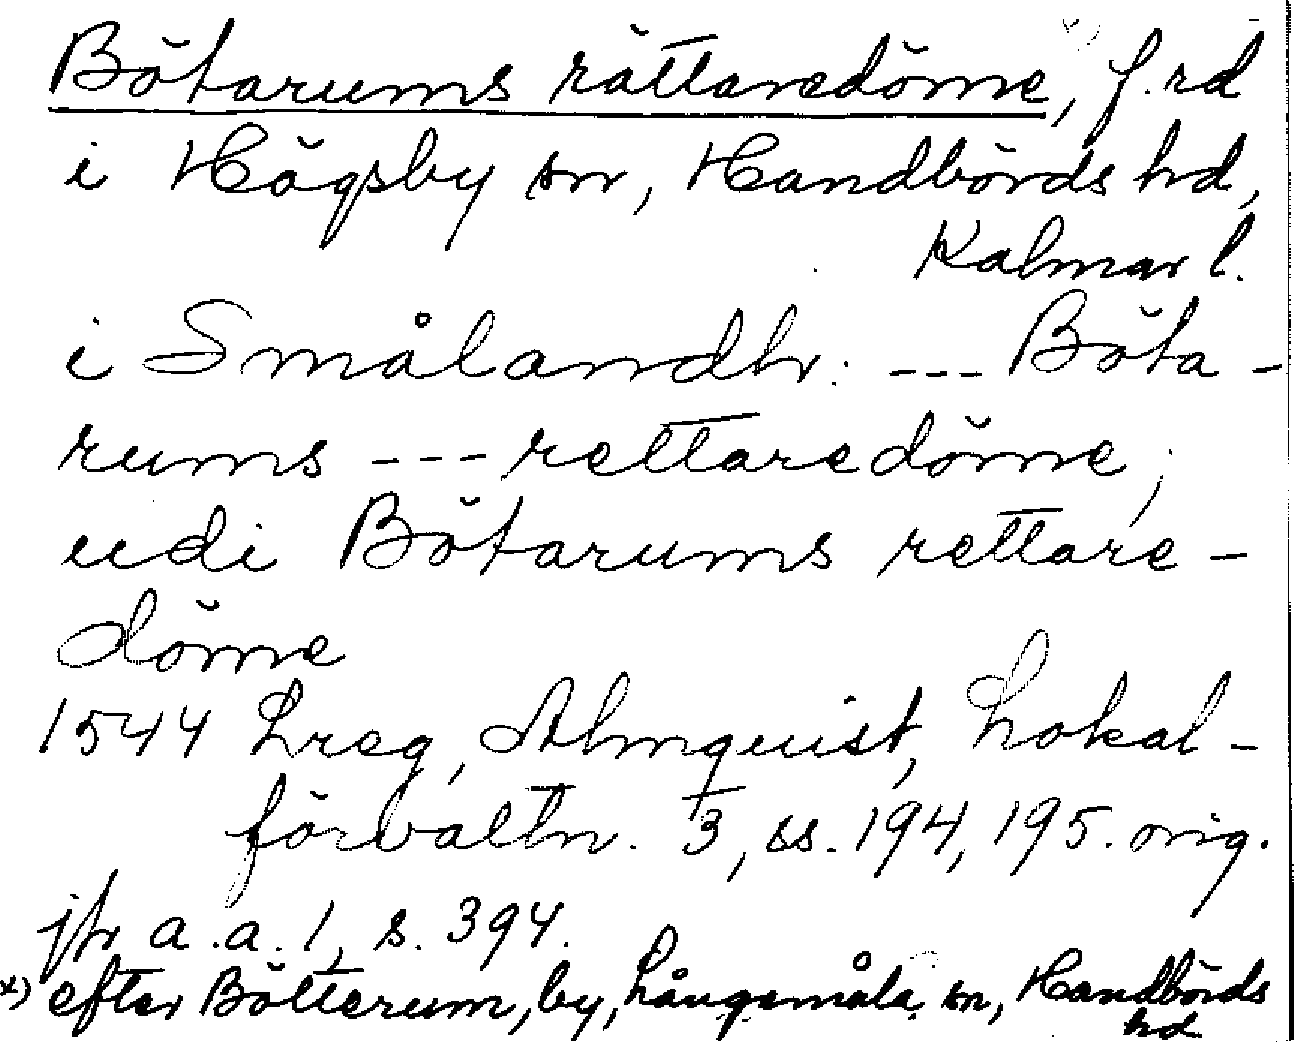 Bötarums rättaredöme, f.rd
i Högsby sn, Handbörds hd,
Kalmar l.
i Smålandhr: --- Böta-
rums --- rettaredöme;
udi Bötarums rettare-
döme
1544 Lreg, Almquist, Lokal-
förvaltn. 3, ss. 194, 195. orig.
jfr a.a. 1, s. 394.
x) efter Bötterum, by, Långemåla sn, Handbörds
hd